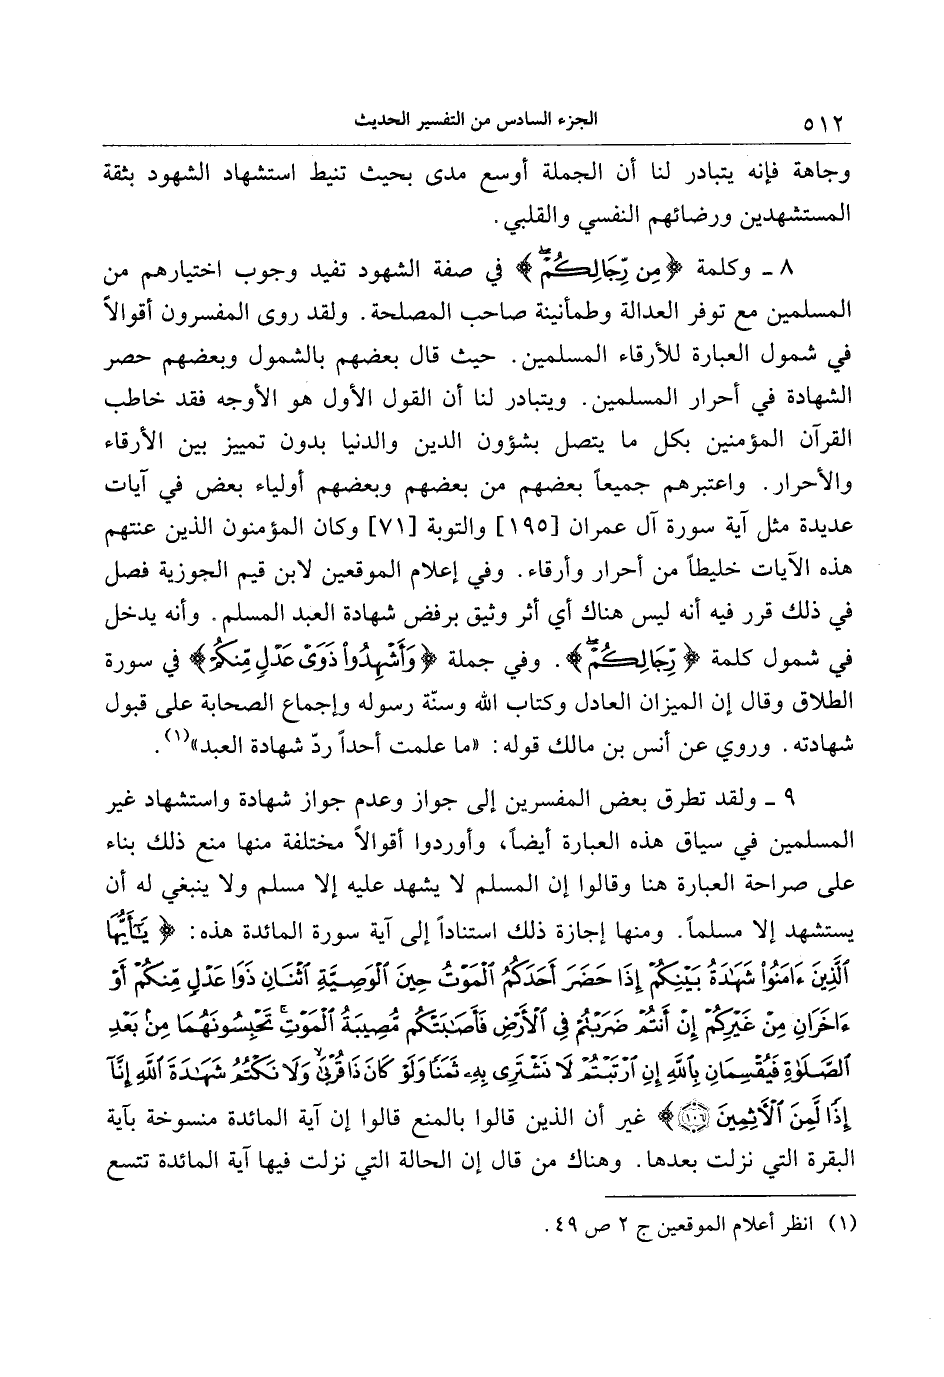 ٥١٢ الجزء السادس من التفسير الحديث
وجاهة فإنه يتبادر لنا أن الجملة أوسع مدى بحيث تنيط استشهاد الشهود بثقة
المستشهدين ورضائهم النفسي والقلبي.
٨ ـ وكلمة ﴿مِن رِّجَالِكُمْۖ﴾ في صفة الشهود تفيد وجوب اختيارهم من
المسلمين مع توفر العدالة وطمأنينة صاحب المصلحة. ولقد روى المفسرون أقوالاً
في شمول العبارة للأرقاء المسلمين. حيث قال بعضهم بالشمول وبعضهم حصر
الشهادة في أحرار المسلمين. ويتبادر لنا أن القول الأول هو الأوجه فقد خاطب
القرآن المؤمنين بكل ما يتصل بشؤون الدين والدنيا بدون تمييز بين الأرقاء
والأحرار. واعتبرهم جميعاً بعضهم من بعضهم وبعضهم أولياء بعض في آيات
عديدة مثل آية سورة آل عمران [١٩٥] والتوبة [٧١] وكان المؤمنون الذين عنتهم
هذه الآيات خليطاً من أحرار وأرقاء. وفي إعلام الموقعين لابن قيم الجوزية فصل
في ذلك قرر فيه أنه ليس هناك أي أثر وثيق برفض شهادة العبد المسلم. وأنه يدخل
في شمول كلمة ﴿رِّجَالِكُمْۖ﴾. وفي جملة ﴿وَأَشْهِدُوا۟ ذَوَىْ عَدْلٍ مِّنكُمْ﴾ في سورة
الطلاق وقال إن الميزان العادل وكتاب الله وسنّة رسوله وإجماع الصحابة على قبول
شهادته. وروي عن أنس بن مالك قوله: «ما علمت أحداً ردّ شهادة العبد»(١).
٩ ـ ولقد تطرق بعض المفسرين إلى جواز وعدم جواز شهادة واستشهاد غير
المسلمين في سياق هذه العبارة أيضاً، وأوردوا أقوالاً مختلفة منها منع ذلك بناء
على صراحة العبارة هنا وقالوا إن المسلم لا يشهد عليه إلا مسلم ولا ينبغي له أن
يستشهد إلا مسلماً. ومنها إجازة ذلك استناداً إلى آية سورة المائدة هذه: ﴿يَٰٓأَيُّهَا
ٱلَّذِينَ ءَامَنُوا۟ شَهَٰدَةُ بَيْنِكُمْ إِذَا حَضَرَ أَحَدَكُمُ ٱلْمَوْتُ حِينَ ٱلْوَصِيَّةِ ٱثْنَانِ ذَوَا عَدْلٍ مِّنكُمْ أَوْ
ءَاخَرَانِ مِنْ غَيْرِكُمْ إِنْ أَنتُمْ ضَرَبْتُمْ فِى ٱلْأَرْضِ فَأَصَٰبَتْكُم مُّصِيبَةُ ٱلْمَوْتِۚ تَحْبِسُونَهُمَا مِنۢ بَعْدِ
ٱلصَّلَوٰةِ فَيُقْسِمَانِ بِٱللَّهِ إِنِ ٱرْتَبْتُمْ لَا نَشْتَرِى بِهِۦ ثَمَنًا وَلَوْ كَانَ ذَا قُرْبَىٰۙ وَلَا نَكْتُمُ شَهَٰدَةَ ٱللَّهِ إِنَّآ
إِذًا لَّمِنَ ٱلْءَاثِمِينَ ١٠٦﴾ غير أن الذين قالوا بالمنع قالوا إن آية المائدة منسوخة بآية
البقرة التي نزلت بعدها. وهناك من قال إن الحالة التي نزلت فيها آية المائدة تتسع
(١) انظر أعلام الموقعين ج ٢ ص ٤٩.